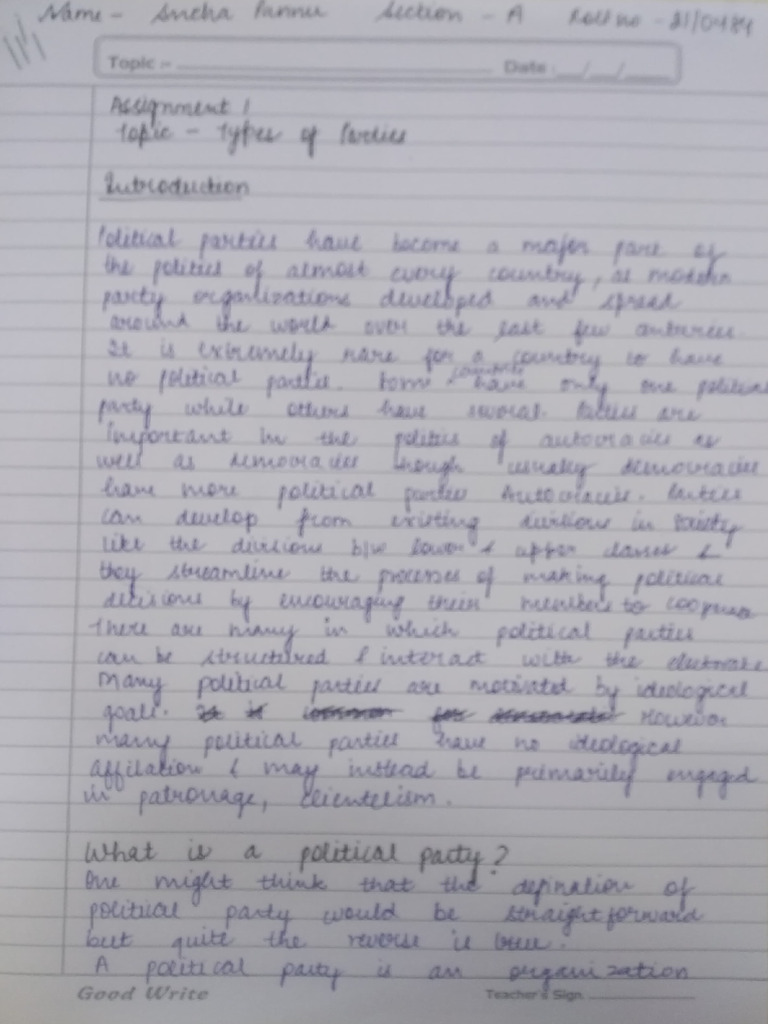 Name - Sneha Pannu Section - A Roll no - 21/0484
Topic :- Date / /
Assignment 1
Topic - Types of Parties
Introduction
Political parties have become a major part of
the politics of almost every country, as modern
party organizations developed and spread
around the world over the last few centuries.
It is extremely rare for a country to have
no political parties. Some countries have only one political
party while others have several. Parties are
important in the politics of autocracies as
well as democracies though usually democracies
have more political parties Autocracies. Parties
can develop from existing divisions in society
like the divisions b/w lower & upper classes &
they streamline the processes of making political
decisions by encouraging their members to cooperate
There are many in which political parties
can be structured & interact with the electorate
Many political parties are motivated by ideological
goals. However
many political parties have no ideological
affilation & may instead be primarily engaged
in patronage, clientelism.
What is a political party?
One might think that the defination of
political party would be straightforward
but quite the reverse is true.
A political party is an organization
Good Write Teacher's Sign